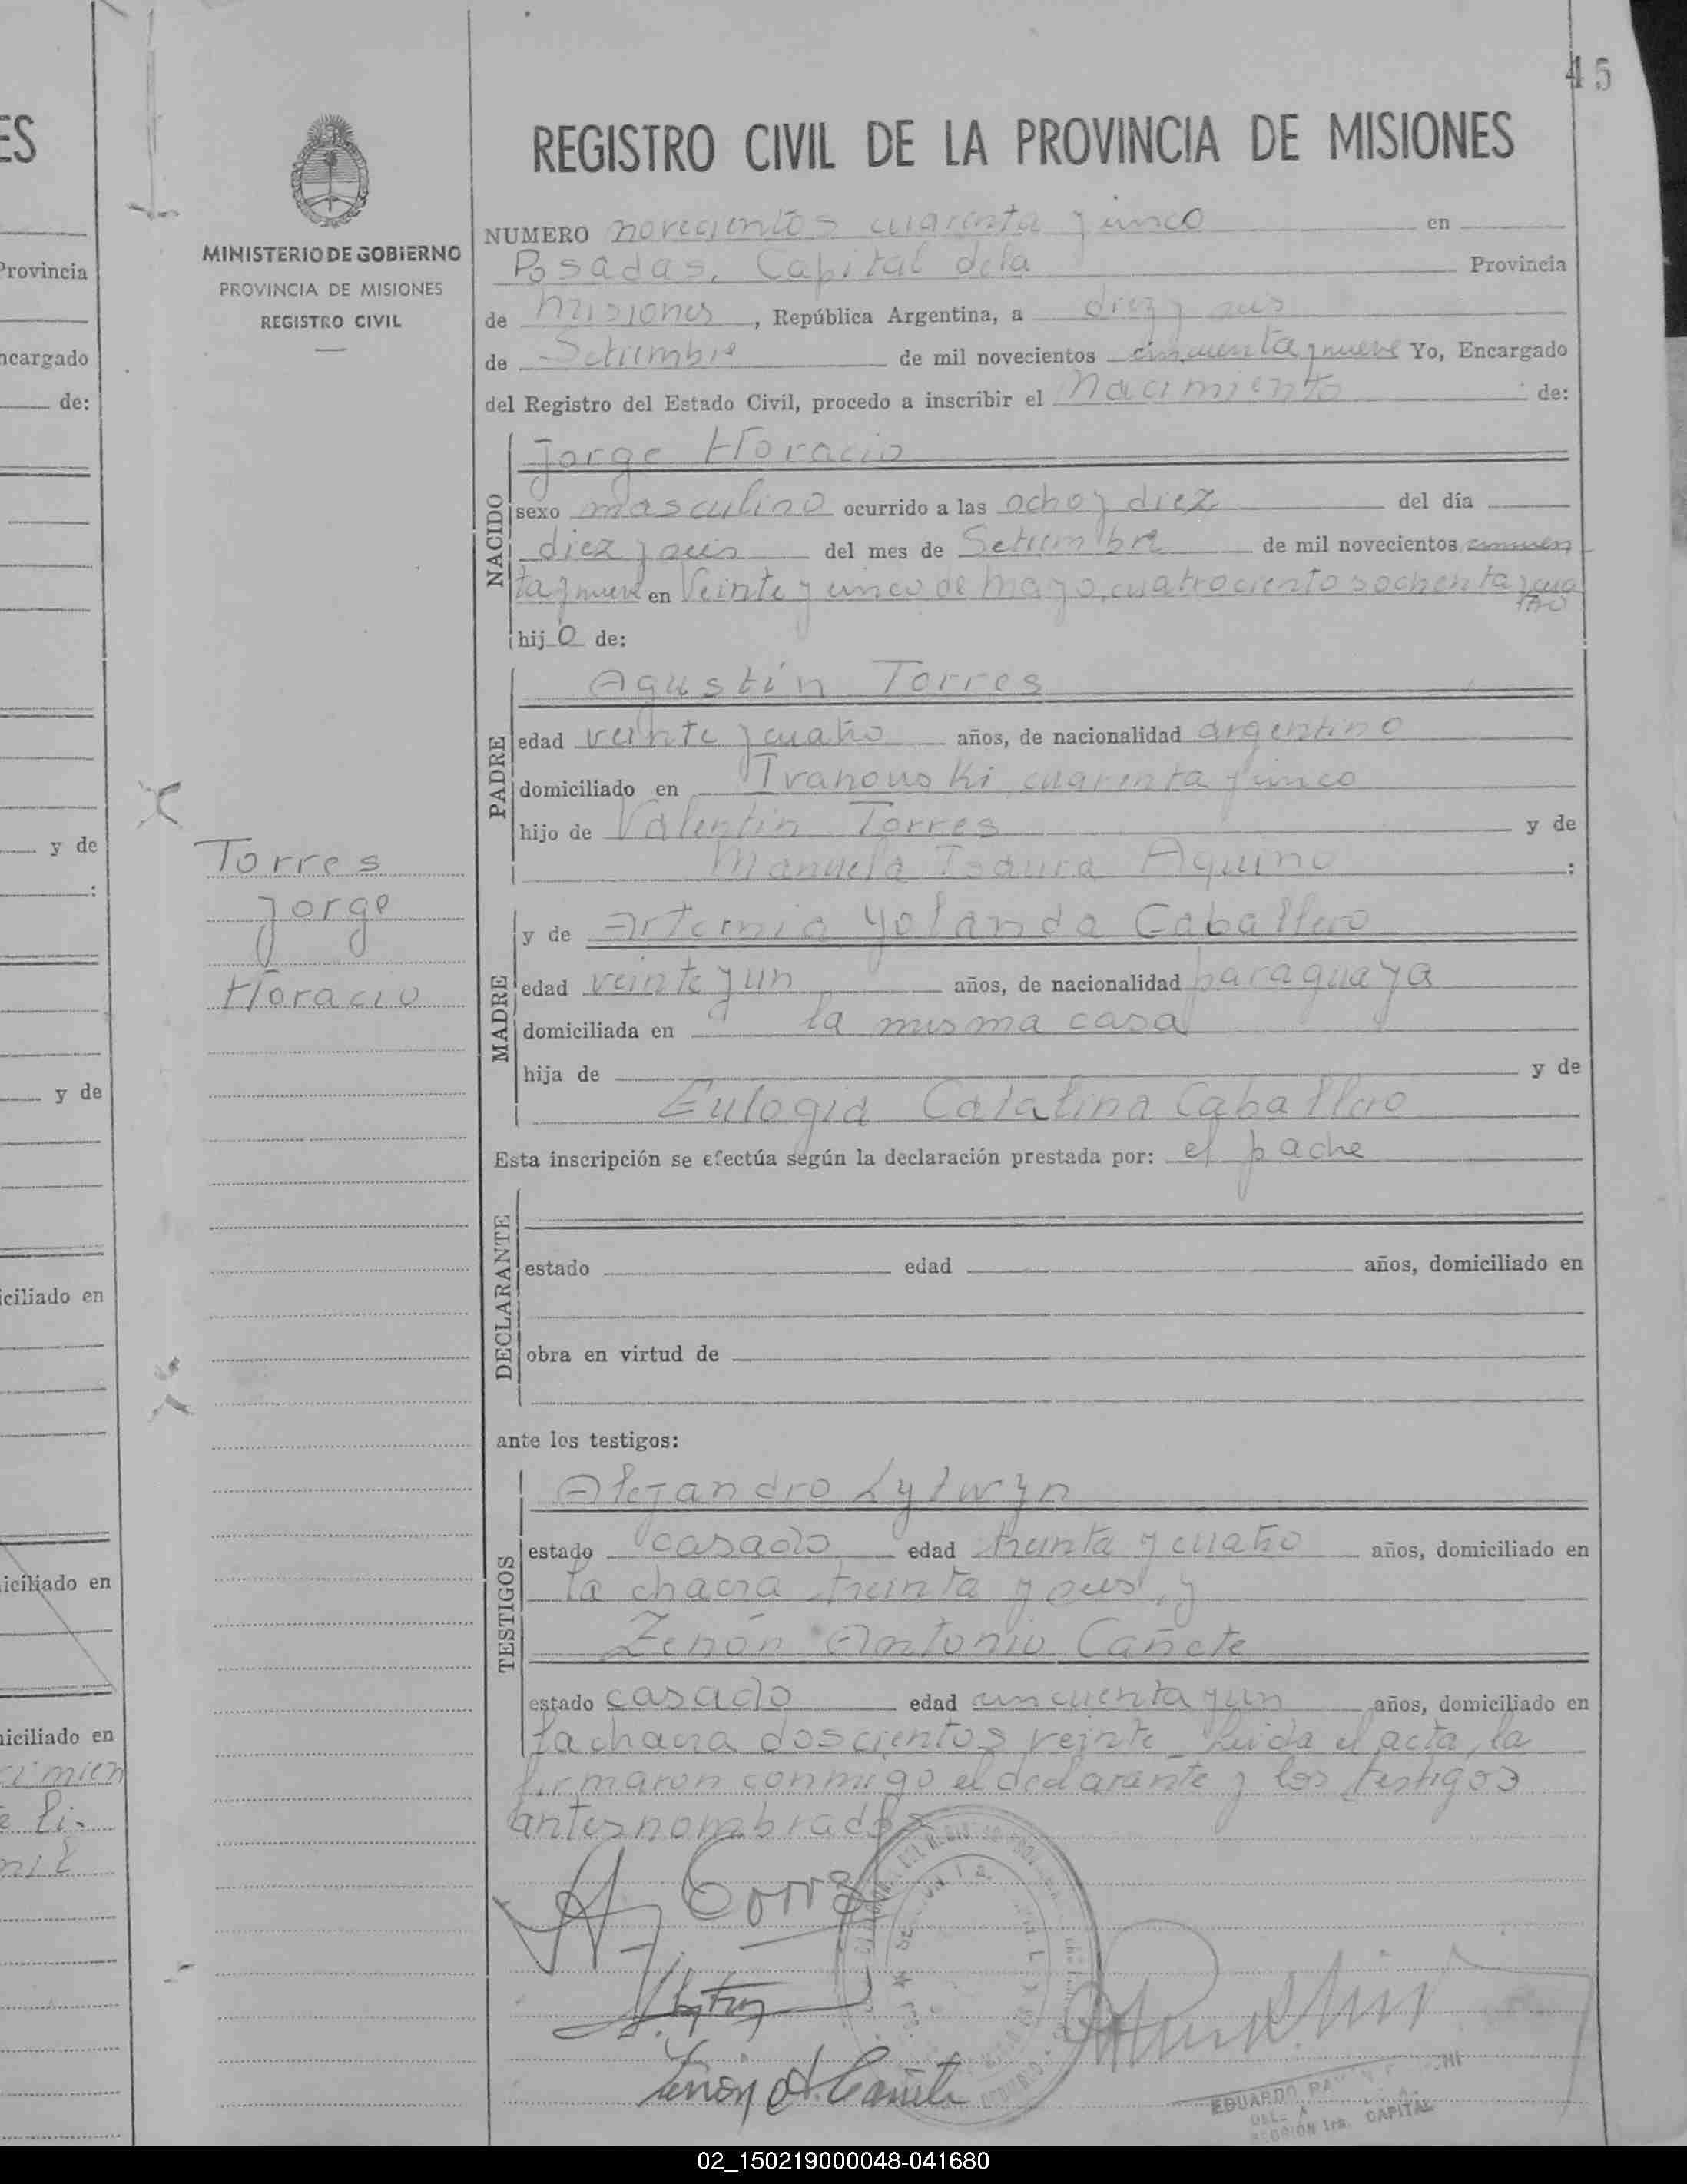 45
ES
Provincia
ncargado
de:
y de
:
y de
iciliado en
iciliado en
niciliado en
cimien
e li-
mil
MINISTERIO DE GOBIERNO
PROVINCIA DE MISIONES
REGISTRO CIVIL
Torres
Jorge
Horacio
REGISTRO CIVIL DE LA PROVINCIA DE MISIONES
NUMERO novecientos cuarenta y cinco en
Posadas, Capital de la Provincia
de Misiones, República Argentina, a diez y seis
de Setiembre de mil novecientos cincuenta y nueve Yo, Encargado
del Registro del Estado Civil, procedo a inscribir el Nacimiento de:
NACIDO
Jorge Horacio
sexo masculino ocurrido a las ocho y diez del día
diez y seis del mes de Setiembre de mil novecientos cincuen
ta y nueve en Veinte y cinco de Mayo, cuatrocientos ochenta y cua
tro
hijo de:
PADRE
Agustín Torres
edad veinte y cuatro años, de nacionalidad argentino
domiciliado en Ivanouski cuarenta y cinco
hijo de Valentin Torres y de
Manuela Isaura Aquino :
MADRE
y de Artemia Yolanda Caballero
edad veinte y un años, de nacionalidad paraguaya
domiciliada en la misma casa
hija de y de
Eulogia Catalina Caballero
Esta inscripción se efectúa según la declaración prestada por: el padre
DECLARANTE
estado edad años, domiciliado en
obra en virtud de
ante los testigos:
TESTIGOS
Alejandro Lytwyn
estado casado edad treinta y cuatro años, domiciliado en
la chacra treinta y seis, y
Zenón Antonio Cañete
estado casado edad cincuenta y un años, domiciliado en
la chacra doscientos veinte. Leida el acta, la
firmaron conmigo el declarante y los testigos
antes nombrados
A. Torres
Zenón A. Cañete
EDUARDO
REGION 1ra. CAPITAL
02_150219000048-041680